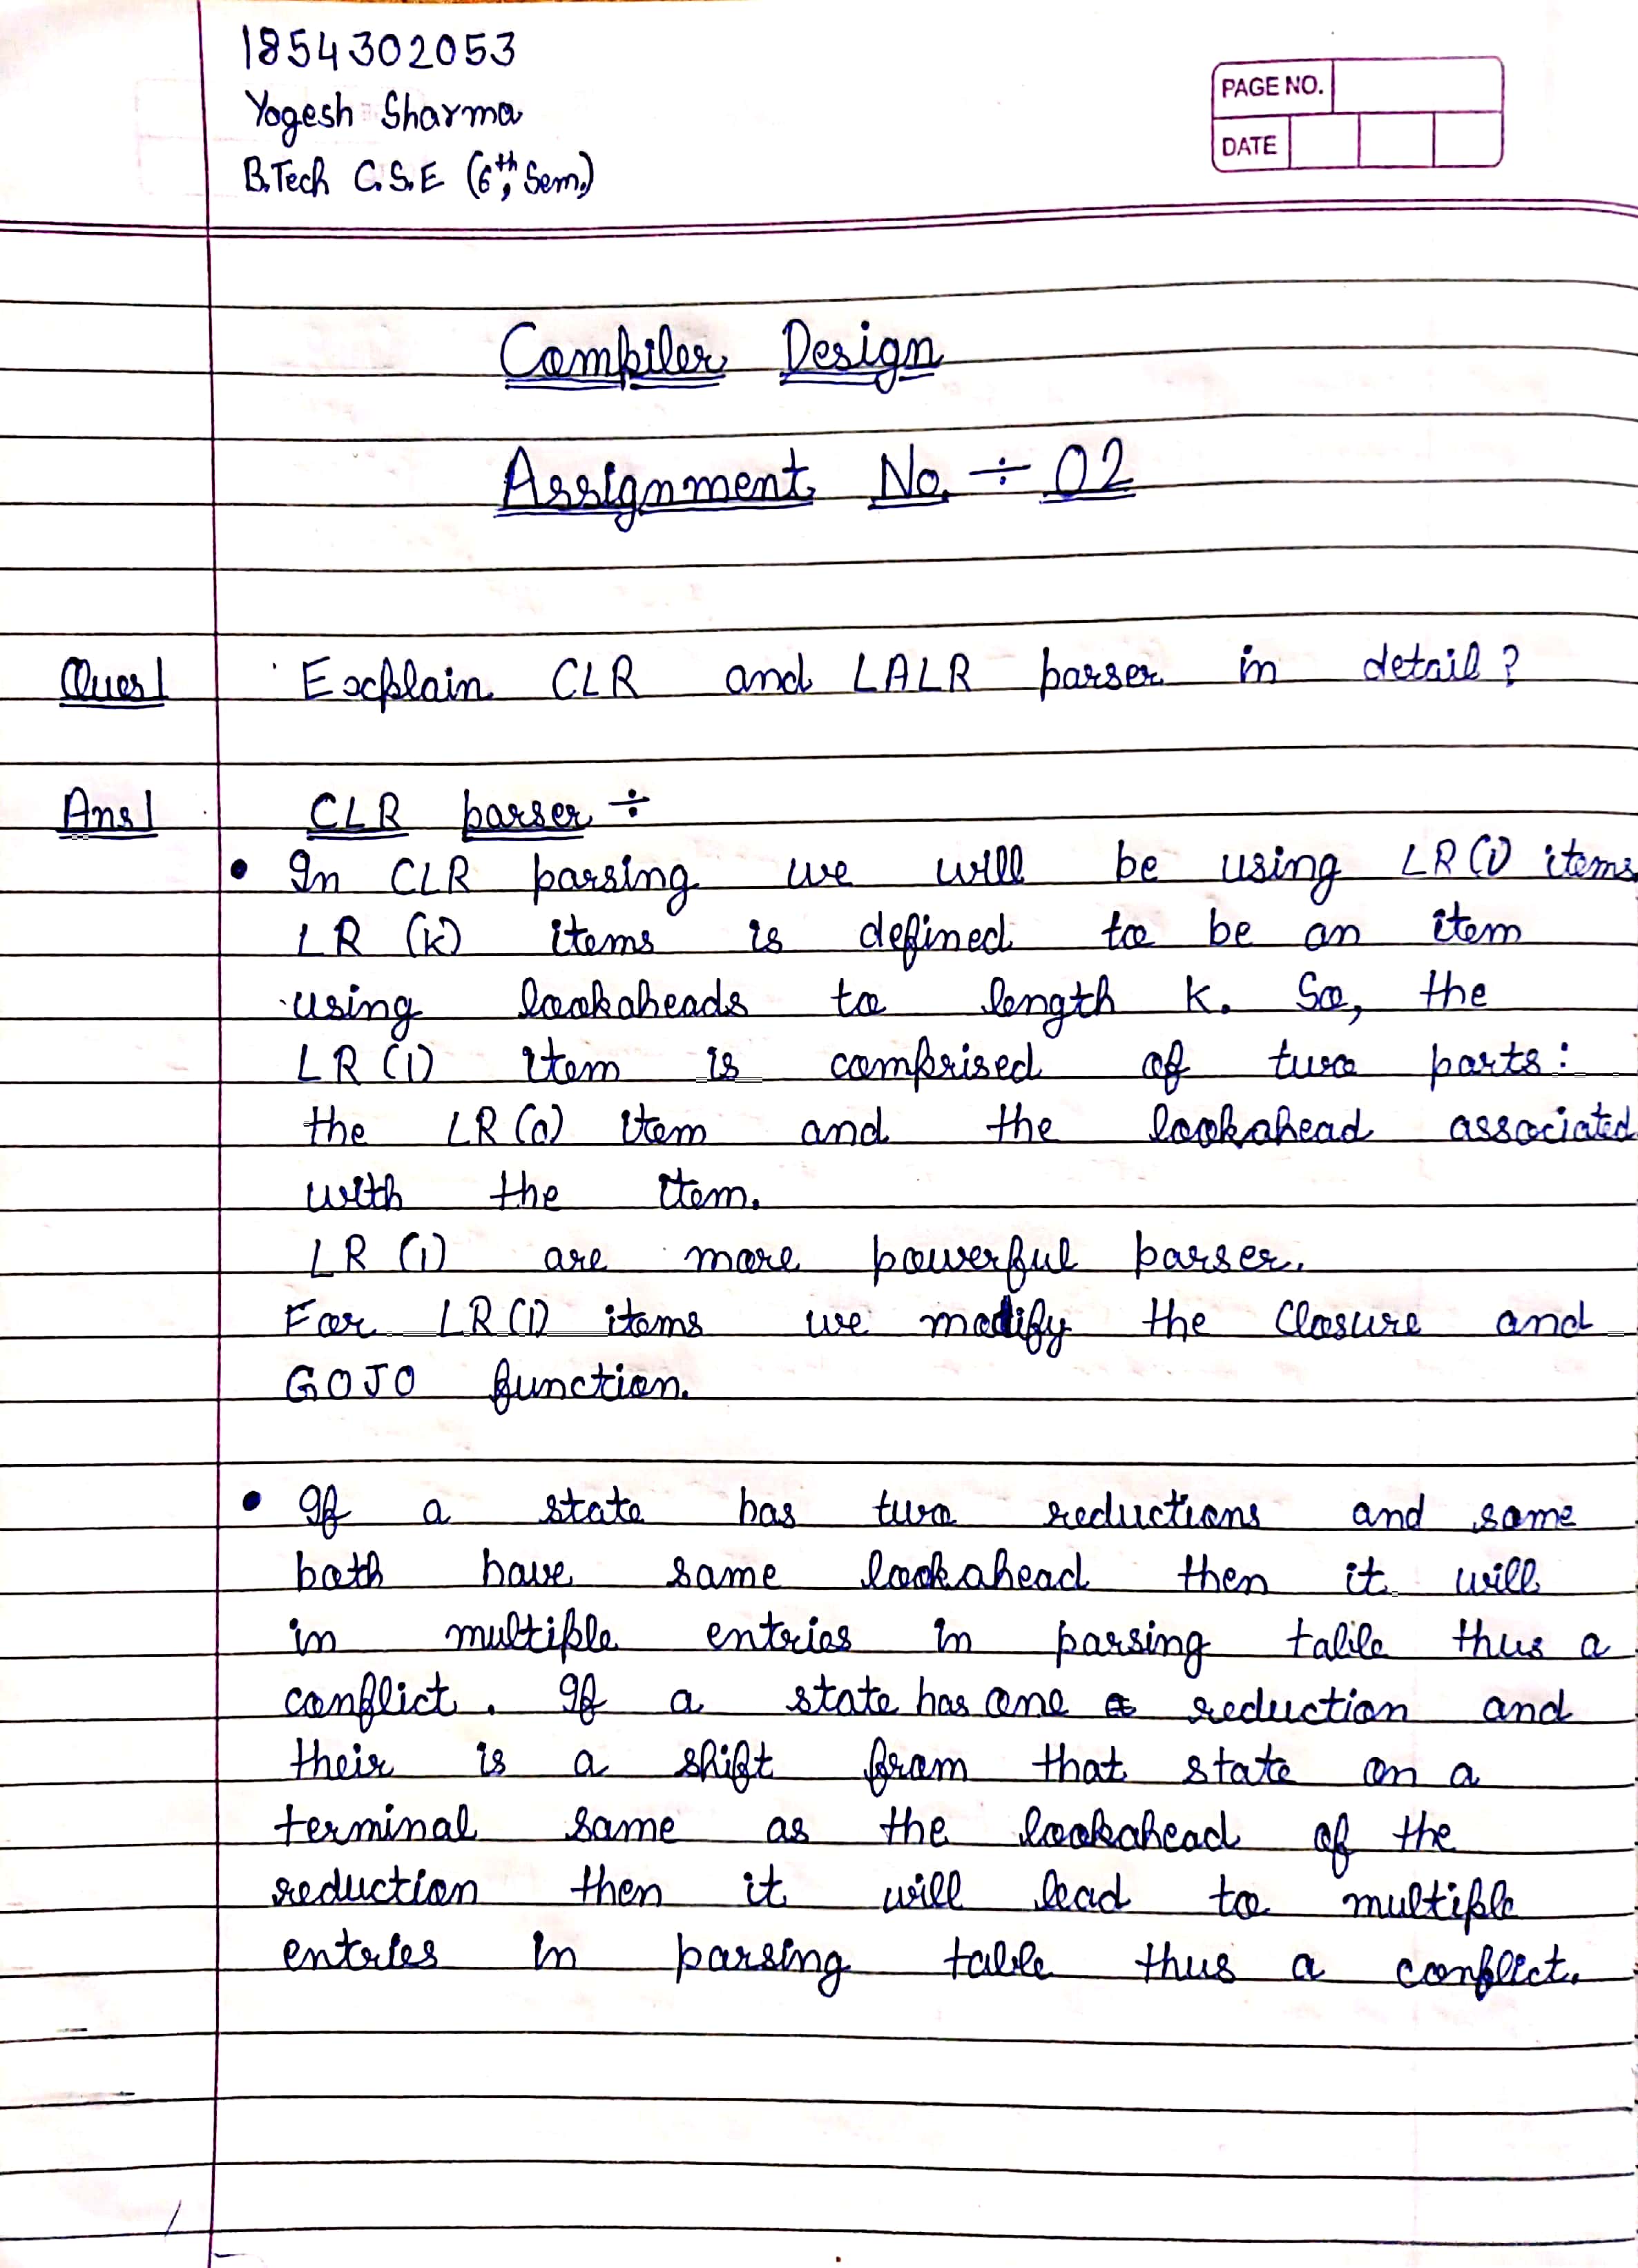 1854302053
Yogesh Sharma
B.Tech C.S.E (6th, Sem.)
PAGE NO.
DATE
Compiler Design
Assignment No. ÷ 02
Ques1 Explain CLR and LALR parser in detail?
Ans1 CLR parser ÷
• In CLR parsing we will be using LR(1) items
LR (k) items is defined to be an item
using lookaheads to length k. So, the
LR (1) item is comprised of two parts:
the LR (0) item and the lookahead associated
with the item.
LR (1) are more powerful parser.
For LR(1) items we modify the Closure and
GOJO function.
• If a state has two reductions and some
both have same lookahead then it will
in multiple entries in parsing table thus a
conflict. If a state has one reduction and
their is a shift from that state on a
terminal same as the lookahead of the
reduction then it will lead to multiple
entries in parsing table thus a conflict.